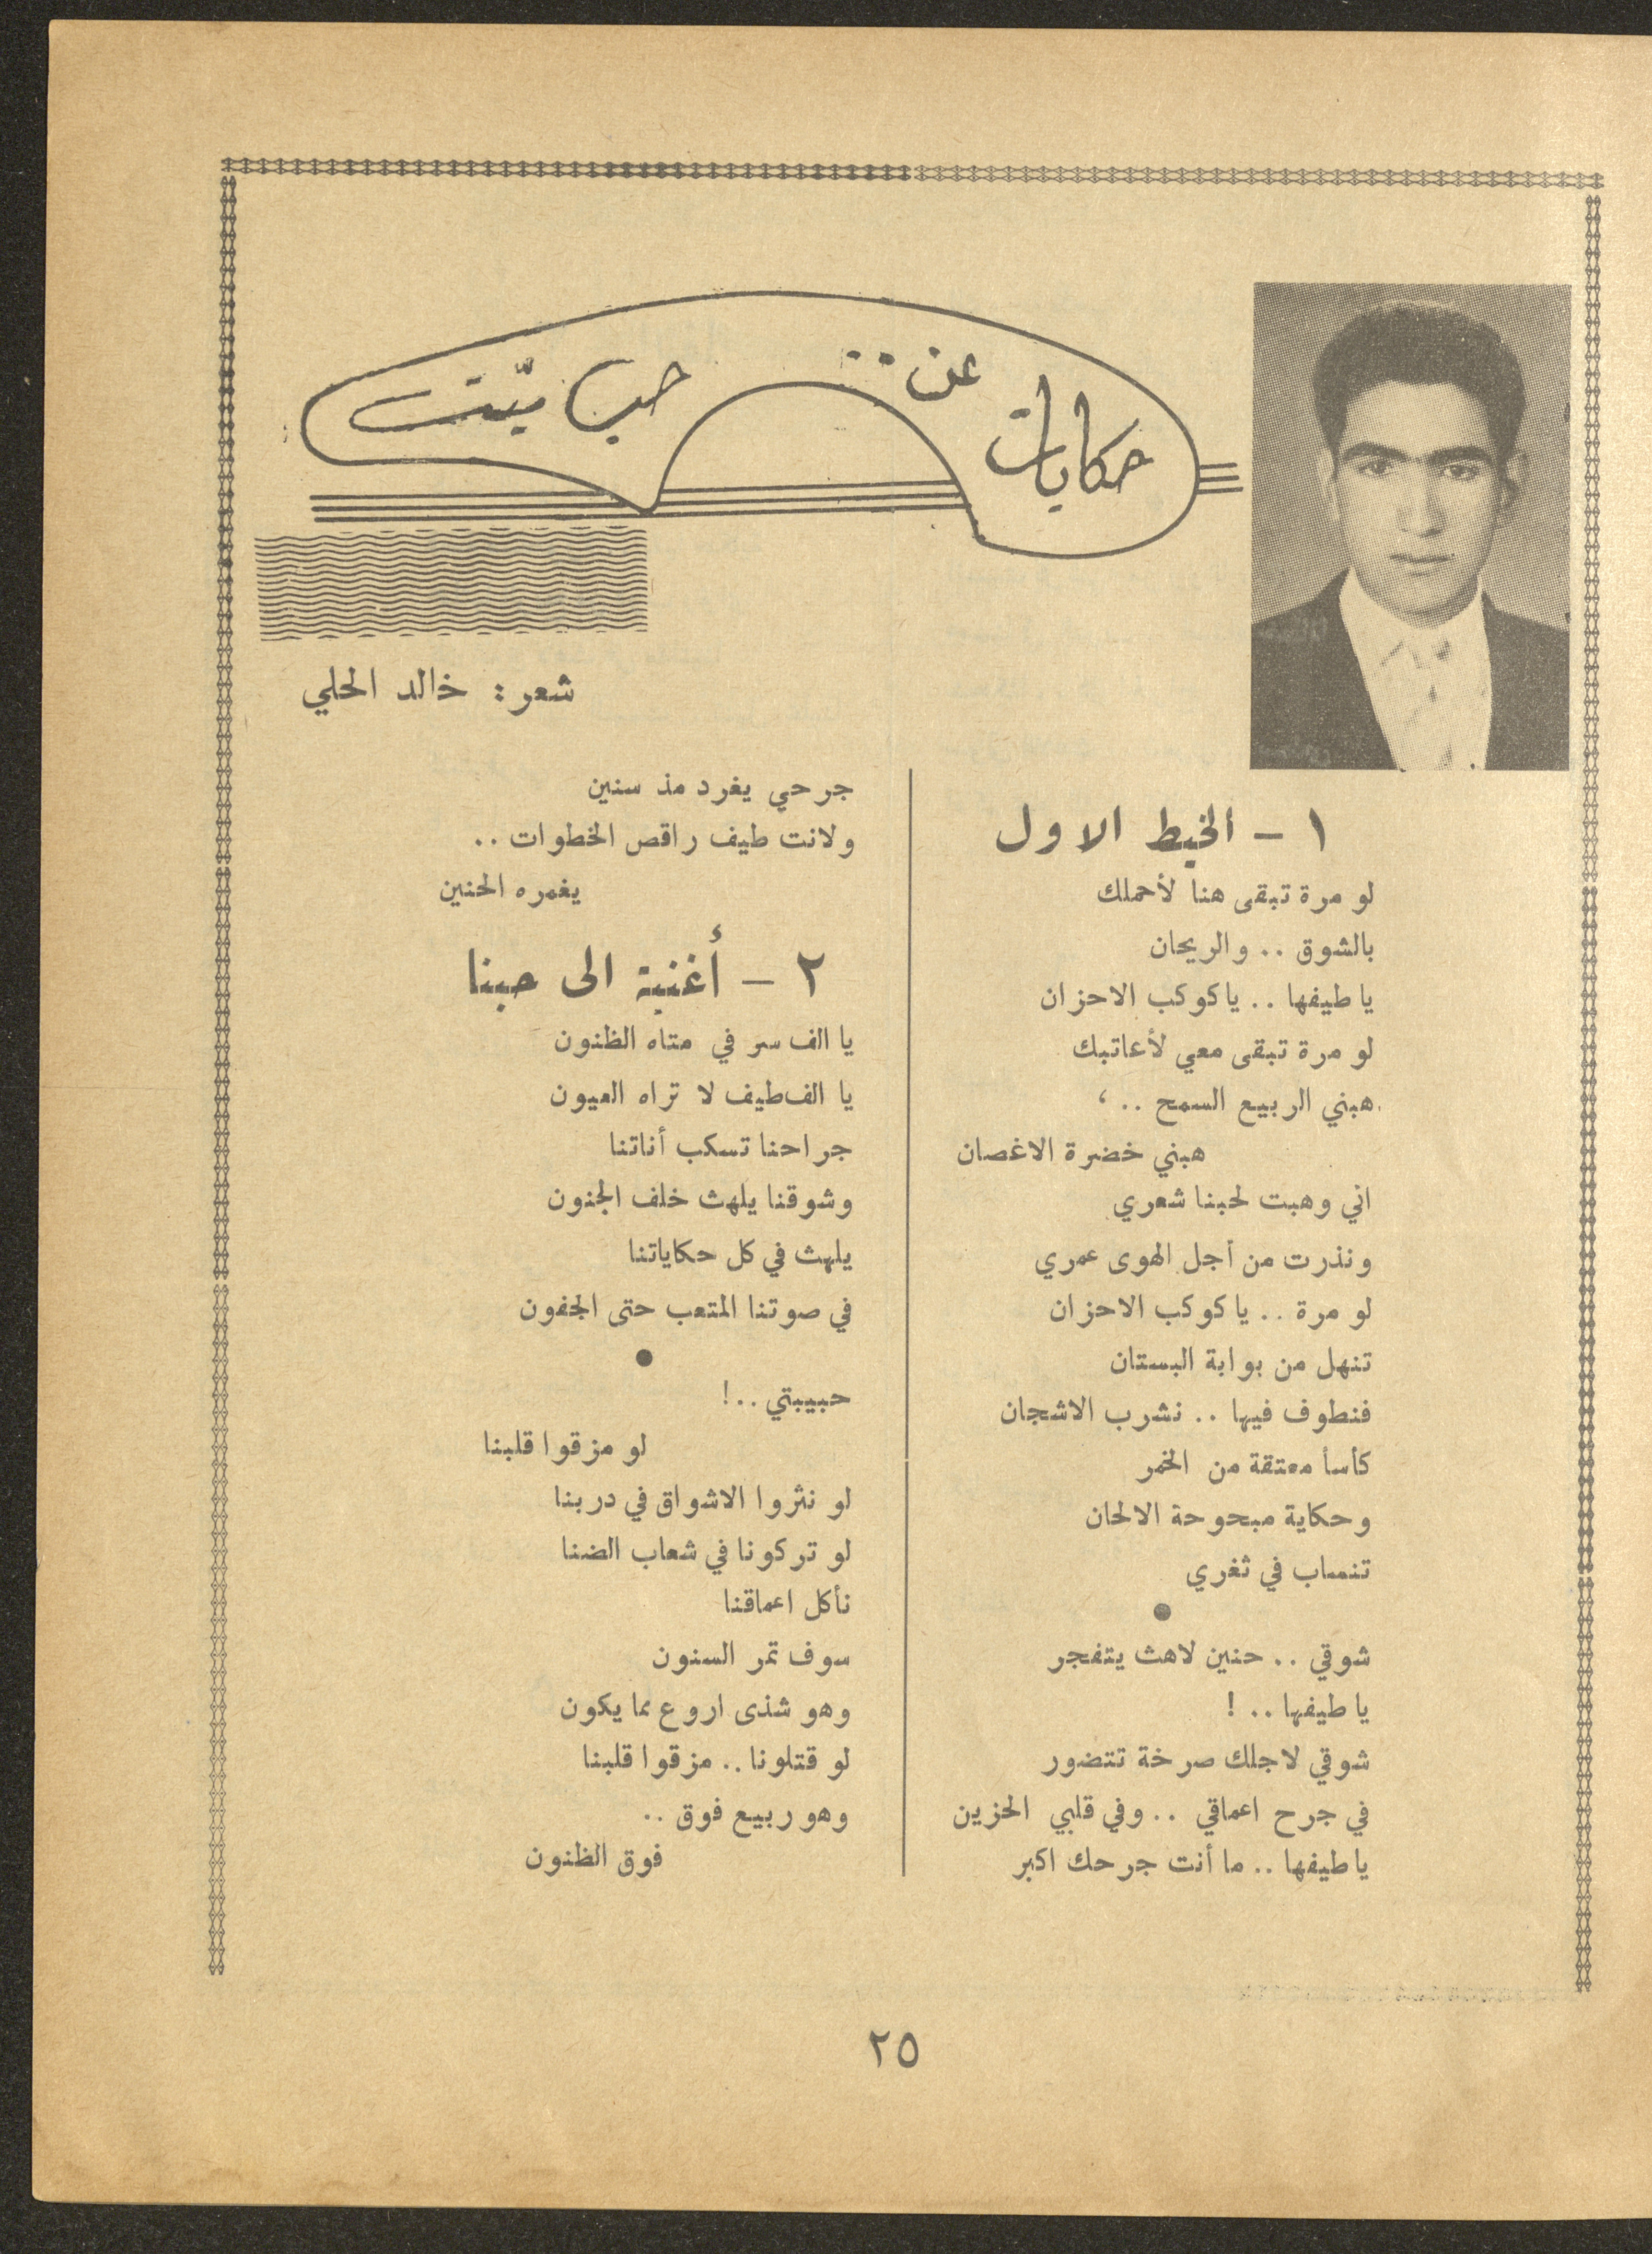 حكايات عن .. حب ميّت
شعر : خالد الحلي
١ - الخيط الاول
لو مرة تبقى هنا لأحملك
بالشوق .. والريحان
يا طيفها .. يا كوكب الاحزان
لو مرة تبقى معي لأعاتبك
هبني الربيع السمح .. ،
هبني خضرة الاغصان
اني وهبت لحبنا شعري
ونذرت من أجل الهوى عمري
لو مرة .. يا كوكب الاحزان
تنهل من بوابة البستان
فنطوف فيها .. نشرب الاشجان
كأسأ معتقة من الخمر
وحكاية مبحوحة الالحان
تنساب في ثغري
●
شوقي .. حنين لاهث يتفجر
يا طيفها .. !
شوقي لاجلك صرخة تتضور
في جرح اعماقي .. وفي قلبي الحزين
يا طيفها .. ما أنت جرحك اكبر
جرحي يغرد مذ سنين
ولانت طيف راقص الخطوات ..
يغمره الحنين
٢ - أغنية الى حبنا
يا الف سر في متاه الظنون
يا الف طيف لا تراه العيون
جراحنا تسكب أناتنا
وشوقنا يلهث خلف الجنون
يلهث في كل حكاياتنا
في صوتنا المتعب حتى الجفون
●
حبيبتي ..!
لو مزقوا قلبنا
لو نثروا الاشواق في دربنا
لو تركونا في شعاب الضنا
نأكل اعماقنا
سوف تمر السنون
وهو شذى اروع مما يكون
لو قتلونا .. مزقوا قلبنا
وهو ربيع فوق ..
فوق الظنون
٢٥